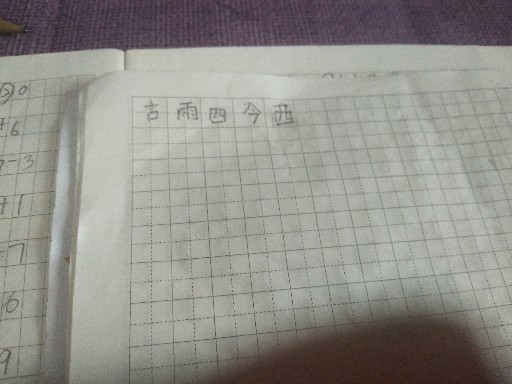 古雨四今西
20
+6
-3
+1
-7
6
9